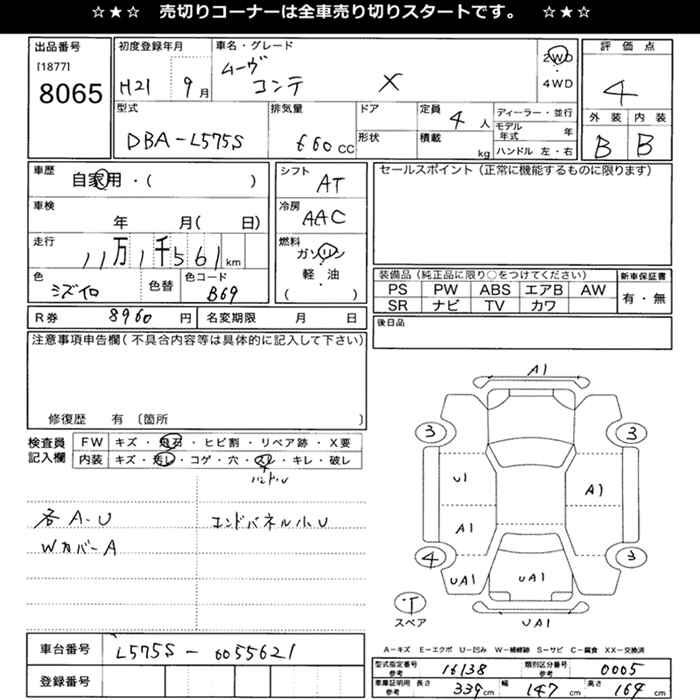 ☆★☆ 売切りコーナーは全車売り切りスタートです。 ☆★☆
出品番号
[1877]
8065
初度登録年月
H21 9月
車名・グレード
ムーヴ
コンテ X
2WD
・
4WD
評価点
4
外装 内装
B B
型式
DBA-L575S
排気量
660cc
ドア
形状
定員 4人
積載 kg
ディーラー・並行
モデル年式 年
ハンドル 左・右
車歴
自家用・( )
車検
年 月( 日)
走行
11万1千561km
色
ミズイロ
色替
色コード
B69
シフト
AT
冷房
AAC
燃料
ガソリン
・
軽・油
( )
セールスポイント(正常に機能するものに限ります)
装備品(純正品に限り○をつけてください)
PS PW ABS エアB AW
SR ナビ TV カワ
新車保証書
有・無
R券 8960円
名変期限 月 日
後日品
注意事項申告欄(不具合内容等は具体的に記入して下さい)
修復歴 有〔箇所 〕
検査員
記入欄
FW キズ・飛石・ヒビ割・リペア跡・X要
内装 キズ・汚レ・コゲ・穴・スレ・キレ・破レ
ハンドル
各A-U エンドパネル小U
Wカバー A
A1
3 3
U1
A1
A1
4 3
UA1 UA1
T
スペア
UA1
車台番号 L575S-0055621
登録番号
A-キズ E-エクボ U-凹み W-補修跡 S-サビ C-腐食 XX-交換済
型式指定番号
参考
16138
類別区分番号
参考
0005
車庫証明用
参考
長さ 339cm 幅 147cm 高さ 164cm